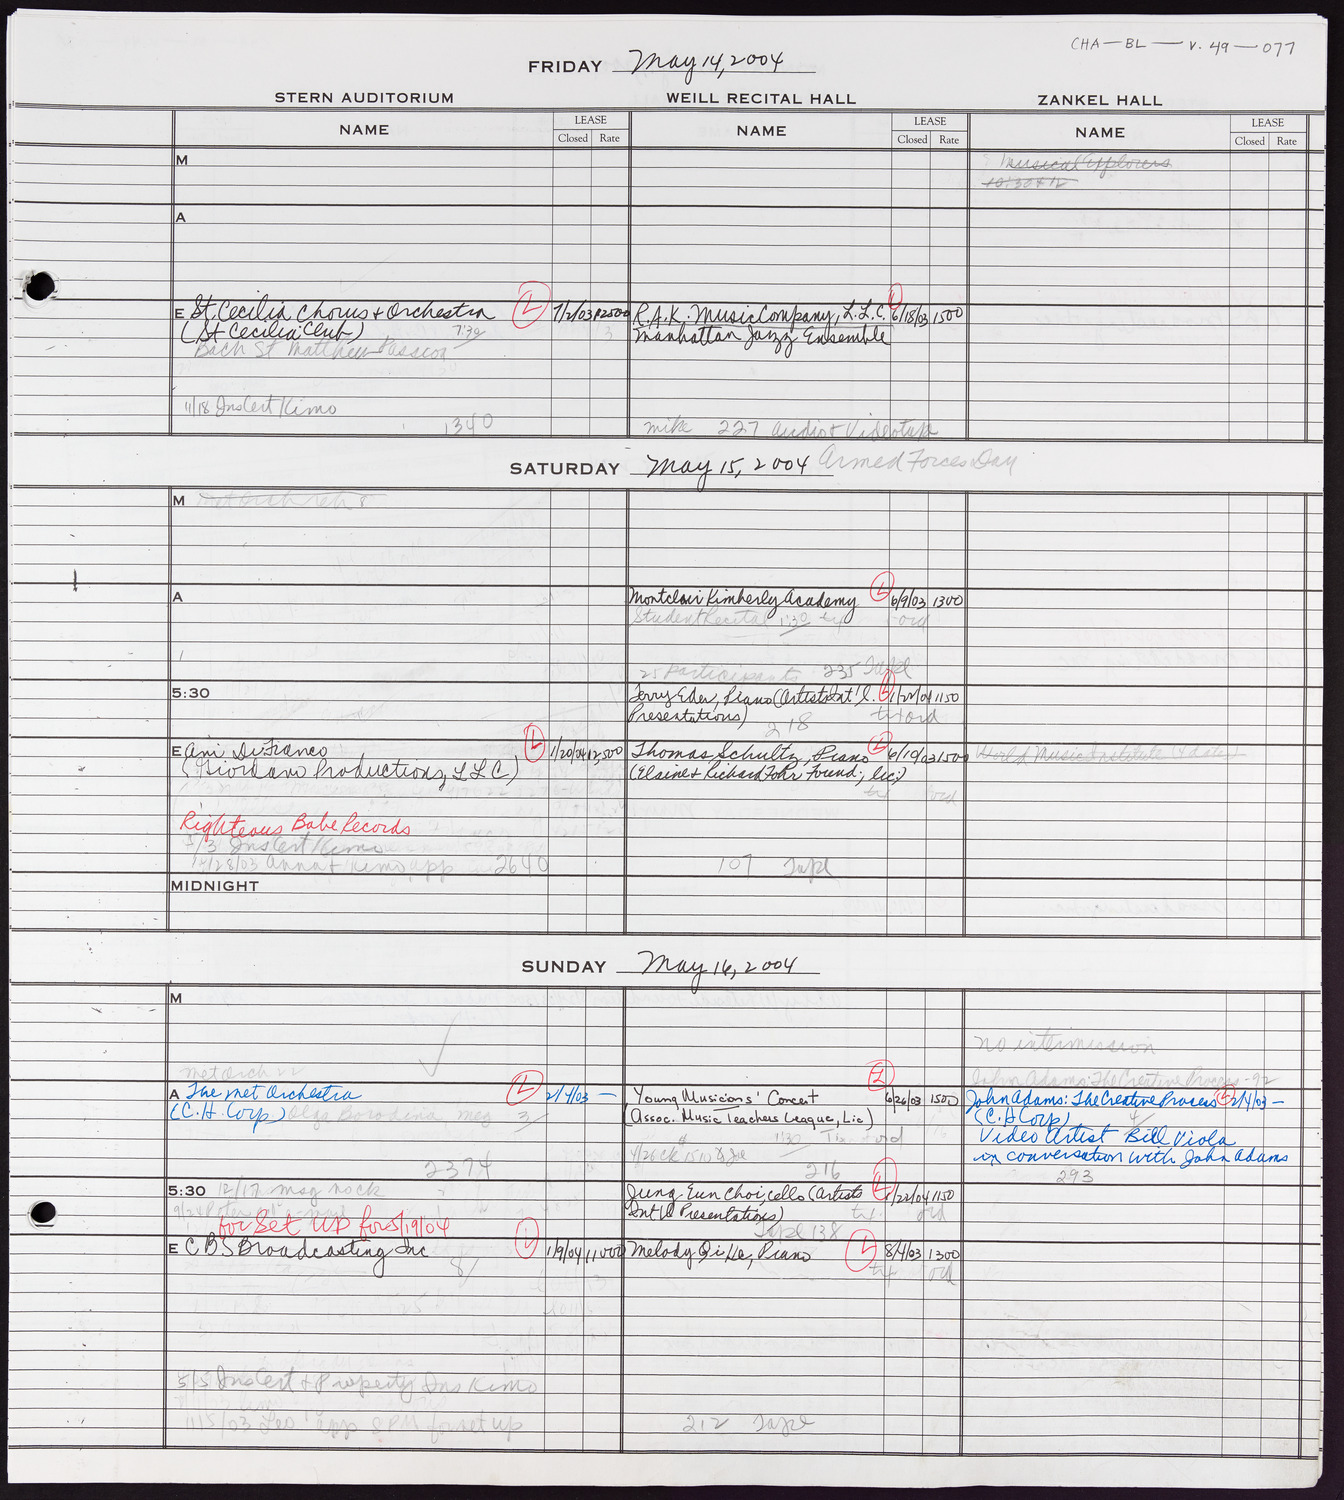 CHA—BL—V. 49—077
FRIDAY May 14, 2004
STERN AUDITORIUM WEILL RECITAL HALL ZANKEL HALL
NAME LEASE Closed Rate NAME LEASE Closed Rate NAME LEASE Closed Rate
M
Musical Explorers
10:30 & 12
A
E St. Cecilia Chorus & Orchestra L 7/2/03 12500
(St Cecilia Club) 7:30
Bach St Matthew Passion
11/18 Ins Cert Kimo
1340
R.A.K. Music Company, L.L.C. L 6/18/03 1500
Manhattan Jazz Ensemble
mike 227 audio & Videotape
SATURDAY May 15, 2004 Armed Forces Day
M Met Orch Reh
A
Montclair Kimberly Academy L 6/9/03 1300
Student Recital 1:30 ord
25 Participants 235 Tape
5:30
Jerry Eder, Piano (Artists Int'l. L 1/22/04 1150
Presentations) 218 txt ord
E Ani DiFranco L 1/20/04 12,500
(Giordano Productions, L L C)
Righteous Babe Records
5/3 Ins Cert Kimo
Anna & Kimo, app 2640
Thomas Schultz, Piano L 6/19/03 1500
(Elaine & Richard Fohr Found; lic;)
ord
107 Tape
World Music Institute (4 dates)
MIDNIGHT
SUNDAY May 16, 2004
M
met orch
A The Met Orchestra L 2/4/03 —
(C.H. Corp) Olga Borodina mez 3
2374
Young Musicians' Concert L 6/26/03 1500
(Assoc. Music Teachers League, Lic)
1:30 ord
4/26 ck # 1510
216
no intermission
John Adams: The Creative Process-92
John Adams: The Creative Process L 2/4/03 —
(C.H Corp) 4
Video Artist Bill Viola
in conversation with John Adams
293
5:30 12/17 msg Nock
for Set Up for 5/19/04
Jung Eun Choi, cello (Artists L 1/22/04 1150
Int'l Presentations)
Tape 138
E CBS Broadcasting Inc L 1/9/04 11,000
8/
5/5 Ins Cert & Property Ins Kimo
11/5/03 Leo app 8PM for set up
Melody Qi He, Piano L 8/4/03 1300
ord
212 Tape